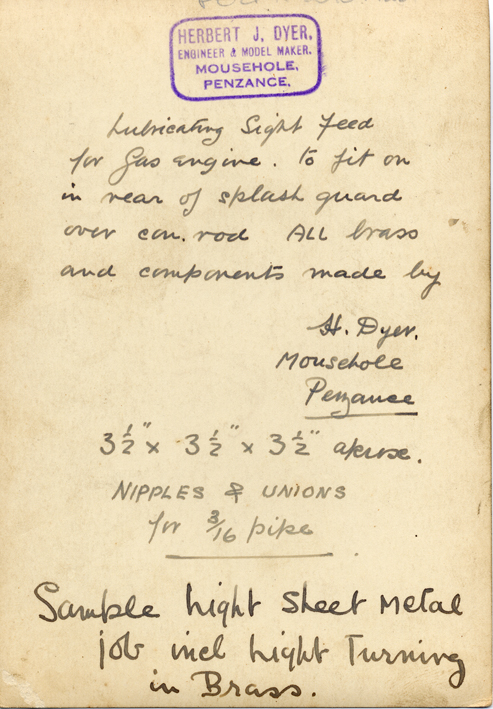 HERBERT J. DYER,
ENGINEER & MODEL MAKER.
MOUSEHOLE,
PENZANCE.
Lubricating Sight Feed
for Gas engine. to fit on
in rear of splash guard
over con. rod ALL brass
and components made by
H. Dyer.
Mousehole
Penzance
3½" x 3½" x 3½" aprox.
NIPPLES & UNIONS
for 3/16 pipe
Sample Light Sheet Metal
job incl Light Turning
in Brass.